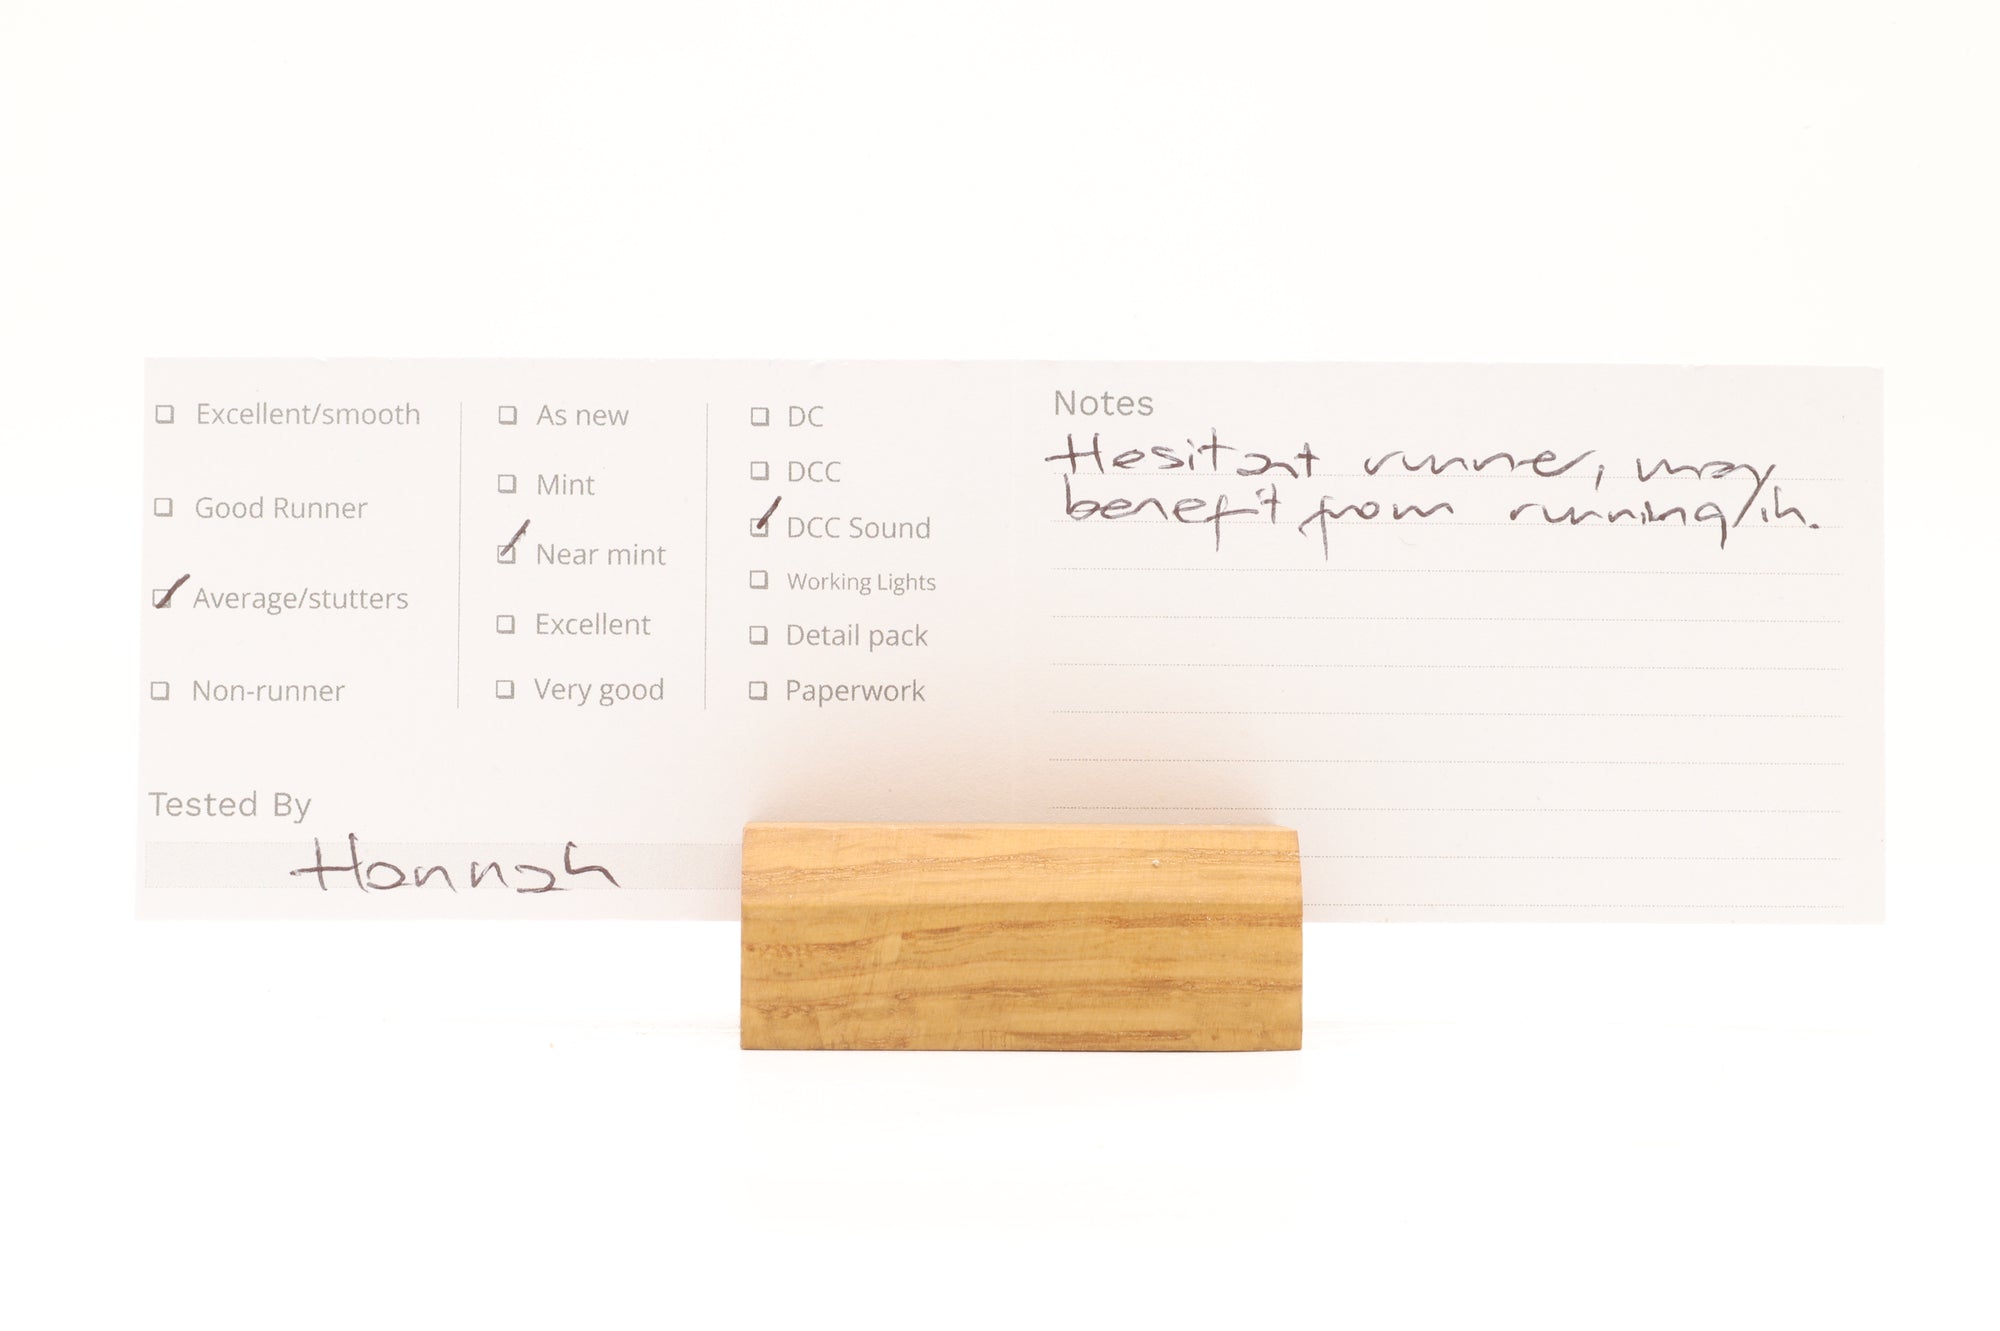 Excellent/smooth
Good Runner
Average/stutters
Non-runner
As new
Mint
Near mint
Excellent
Very good
DC
DCC
DCC Sound
Working Lights
Detail pack
Paperwork
Tested By
Hannah
Notes
Hesitant runner, may
benefit from running/in.